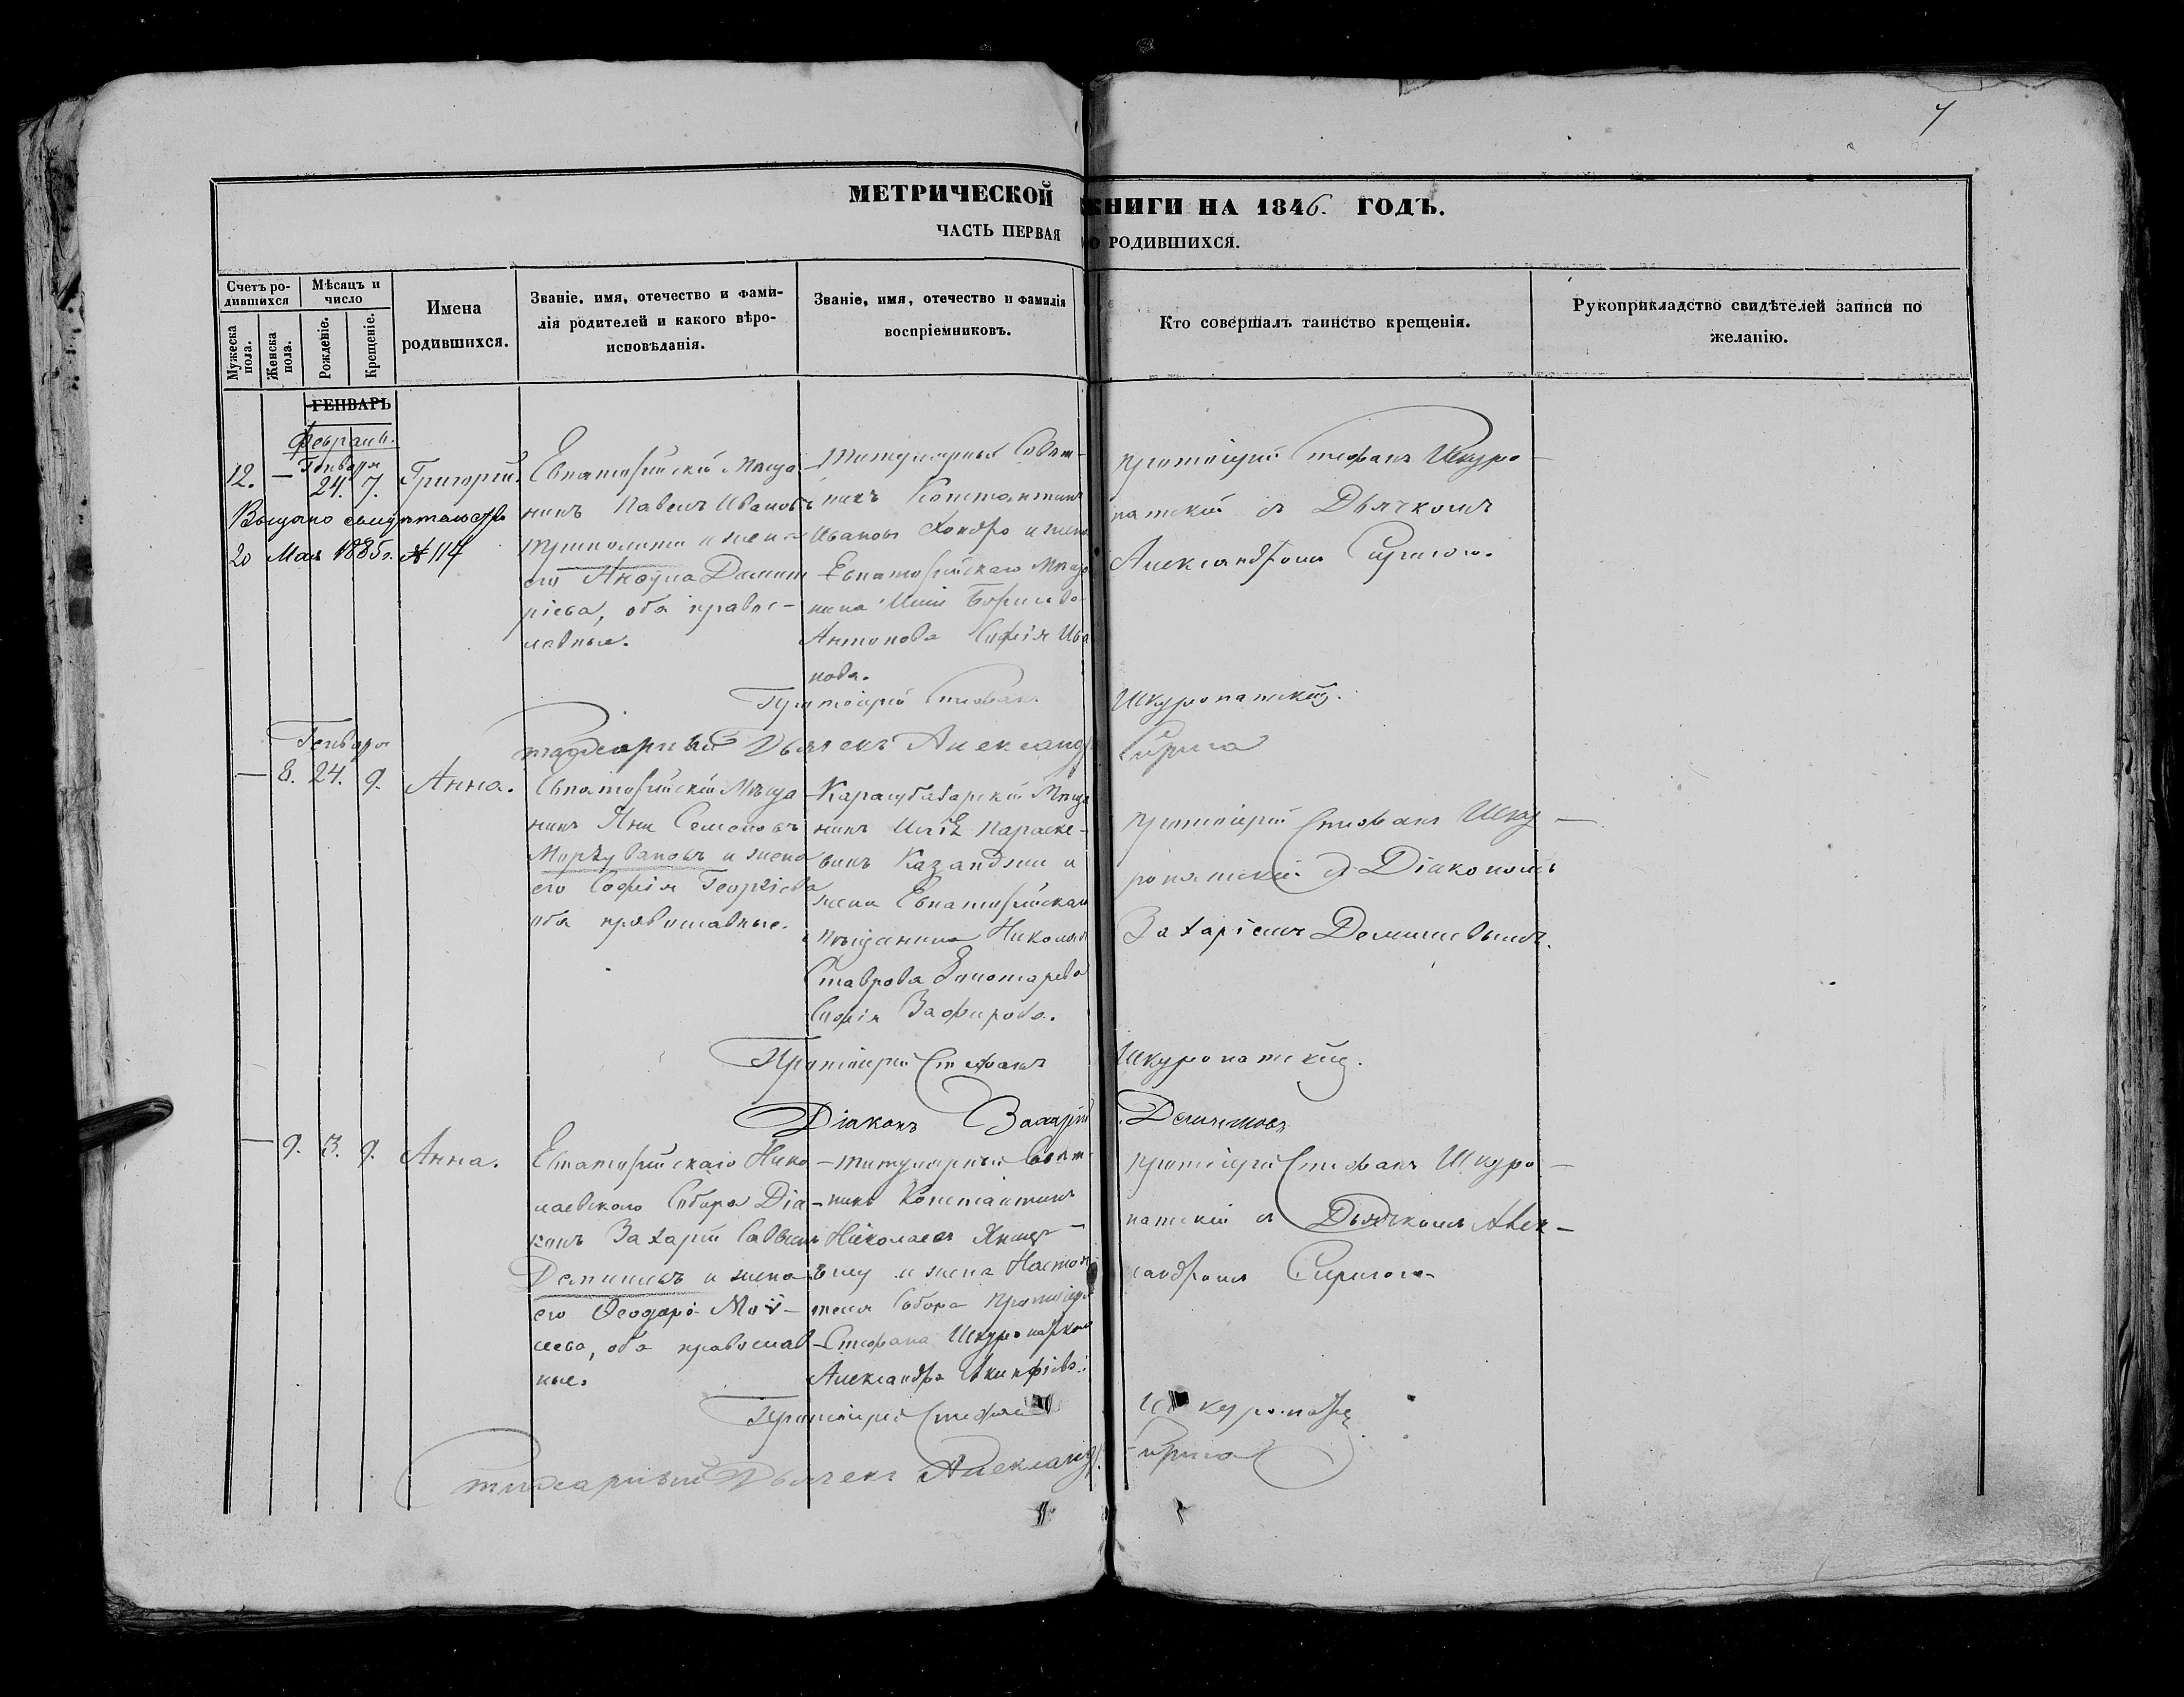 7
МЕТРИЧЕСКОЙ КНИГИ НА 1846. ГОДЪ.
ЧАСТЬ ПЕРВАЯ О РОДИВШИХСЯ.
Счетъ ро-
дившихся
Мужеска пола.
Женска пола.
Мѣсяцъ и
число
Рожденіе.
Крещеніе.
Имена
родившихся.
Званіе, имя, отечество и фами-
лія родителей и какого вѣро-
исповѣданія.
Званіе, имя, отечество и фамилія
воспріемниковъ.
Кто совершалъ таинство крещенія.
Рукоприкладство свидѣтелей записи по
желанію.
ГЕНВАРЬ
Февраль.
Генваря
12. — 24. 7. Григорій.
20 Мая 1885 г. № 114
Евпаторійскій Мѣща
нинъ Павелъ Ивановъ
и жена
его Димит
ріева, оба правос-
лавные.
Титулярный Совѣт-
никъ Константинъ
Ивановъ Хондро и жена
Евпаторійскаго Мѣща
нина Иліи
Антонова Софія Ива
нова.
Протоіерей Стефанъ Шкуро—
патскій съ Дьячкомъ
Александромъ
Протоіерей Стефанъ Шкуропатскій.
Дьячекъ Александръ
Генваря
— 8. 24. 9. Анна.
Евпаторійскій Мѣща
нинъ Яни Семеновъ
и жена
его Софія Георгіева
оба православные.
Карасубазарскій Мѣща
нинъ Илія Параске-
винъ Казанджи и
жена Евпаторійскаго
мѣщанина Николая
Ставрова
Софія Зафирова.
Протоіерей Стефанъ Шку—
ропатскій съ Діакономъ
Захаріемъ Демишевымъ.
Протоіерей Стефанъ Шкуропатскій.
Діаконъ Захарій Демишевъ
— 9. 3. 9. Анна.
Евпаторійскаго Нико
лаевскаго Собора Діа-
конъ Захарій Саввинъ
Демишевъ и жена
его Ѳеодора Мои-
сеева, оба православ
ные.
Титулярный Совѣт-
никъ Константинъ
Николаевъ
и жена Настоя
теля Собора Протоіерея
Стефана Шкуропатскаго
Александра Акинфіева.
Протоіерей Стефанъ Шкуро—
патскій съ Дьячкомъ Алек—
сандромъ
Протоіерей Стефанъ
Дьячекъ Александръ